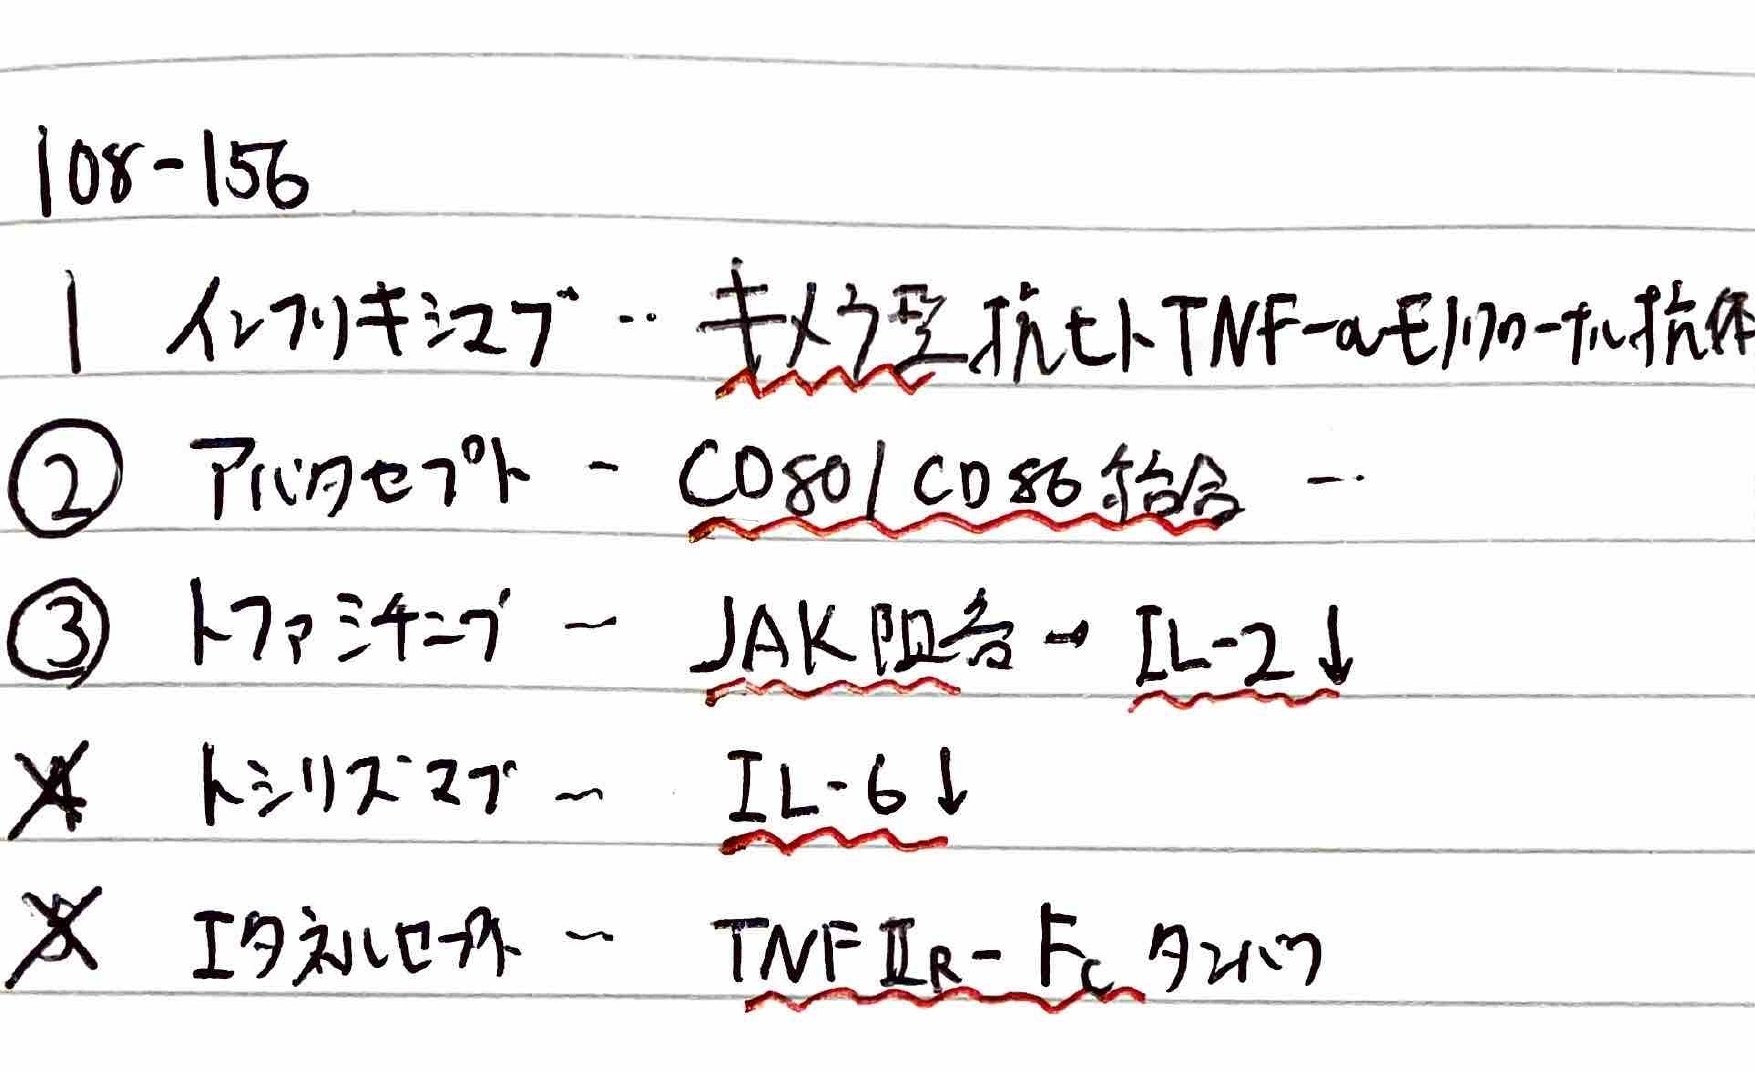 108-156
1 インフリキシマブ ‥ キメラ型抗ヒトTNF-αモノクローナル抗体
② アバタセプト - CD80/CD86結合 -‥
③ トファシチニブ - JAK阻害 → IL-2↓
4 トシリズマブ ~ IL-6↓
5 エタネルセプト ~ TNFⅡR-Fcタンパク